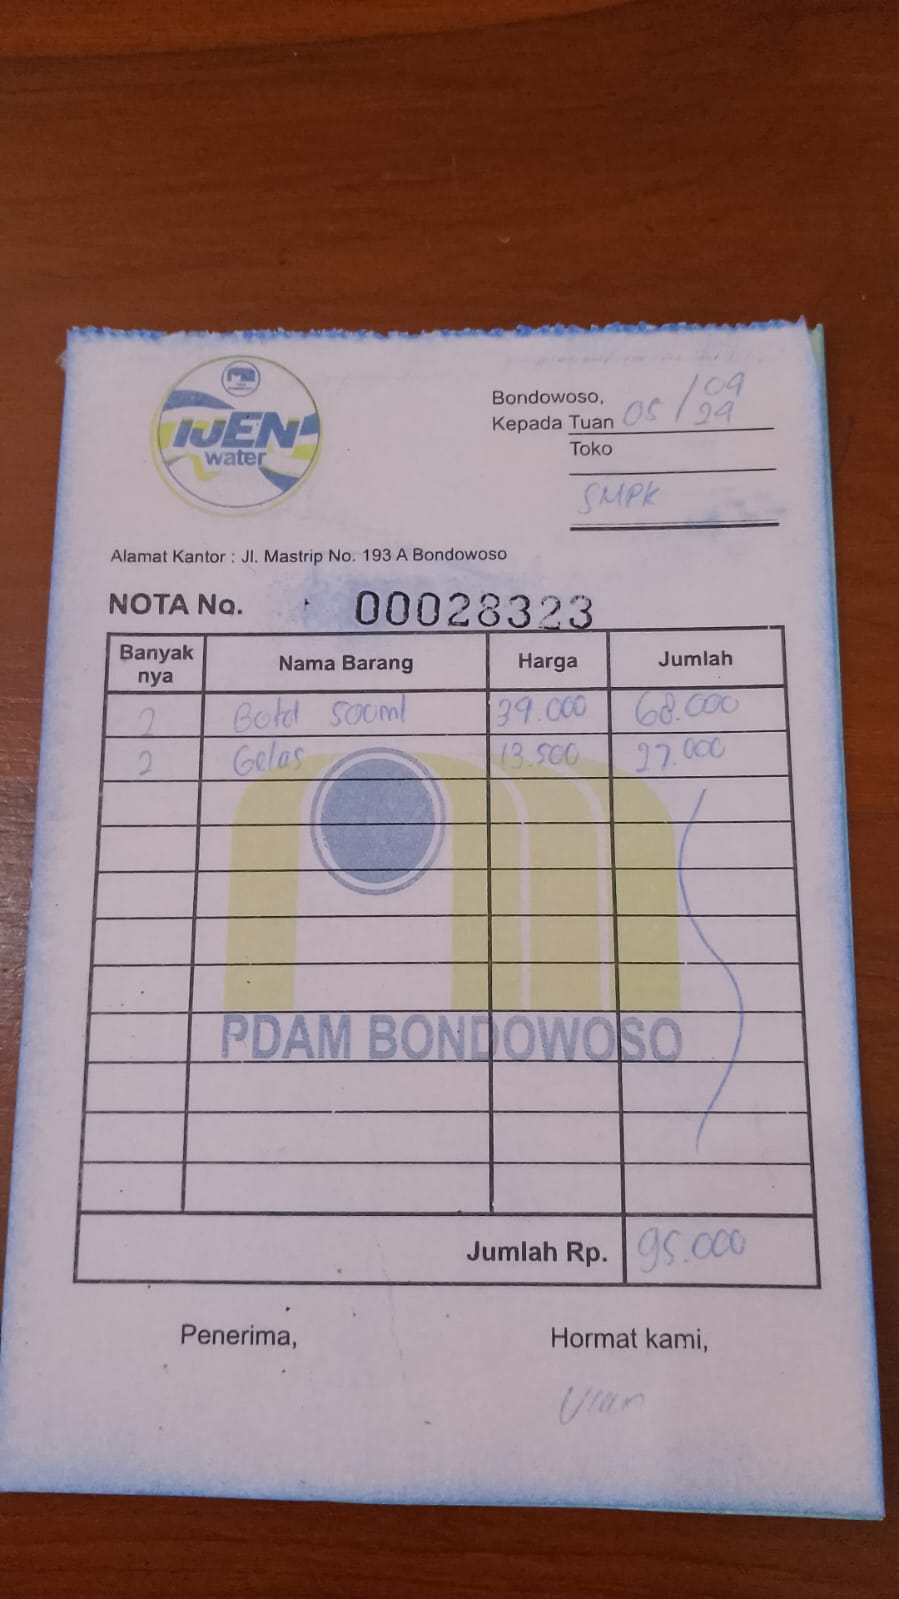 IJEN
water
Bondowoso, 05/09
Kepada Tuan 24
Toko
SMPK
Alamat Kantor : Jl. Mastrip No. 193 A Bondowoso
NOTA No. 00028323
Banyak nya Nama Barang Harga Jumlah
2 Botol 500ml 34.000 68.000
2 Gelas 13.500 27.000
PDAM BONDOWOSO
Jumlah Rp. 95.000
Penerima, Hormat kami,